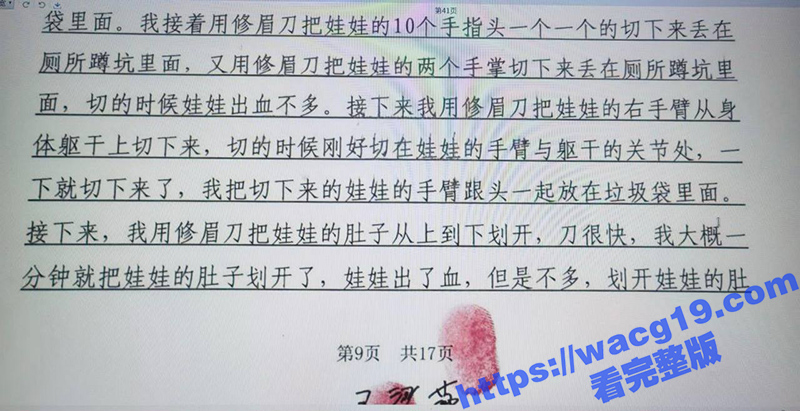 第41页
袋里面。我接着用修眉刀把娃娃的10个手指头一个一个的切下来丢在
厕所蹲坑里面，又用修眉刀把娃娃的两个手掌切下来丢在厕所蹲坑里
面，切的时候娃娃出血不多。接下来我用修眉刀把娃娃的右手臂从身
体躯干上切下来，切的时候刚好切在娃娃的手臂与躯干的关节处，一
下就切下来了，我把切下来的娃娃的手臂跟头一起放在垃圾袋里面。
接下来，我用修眉刀把娃娃的肚子从上到下划开，刀很快，我大概一
分钟就把娃娃的肚子划开了，娃娃出了血，但是不多，划开娃娃的肚
第9页 共17页
https://wacg19.com
看完整版